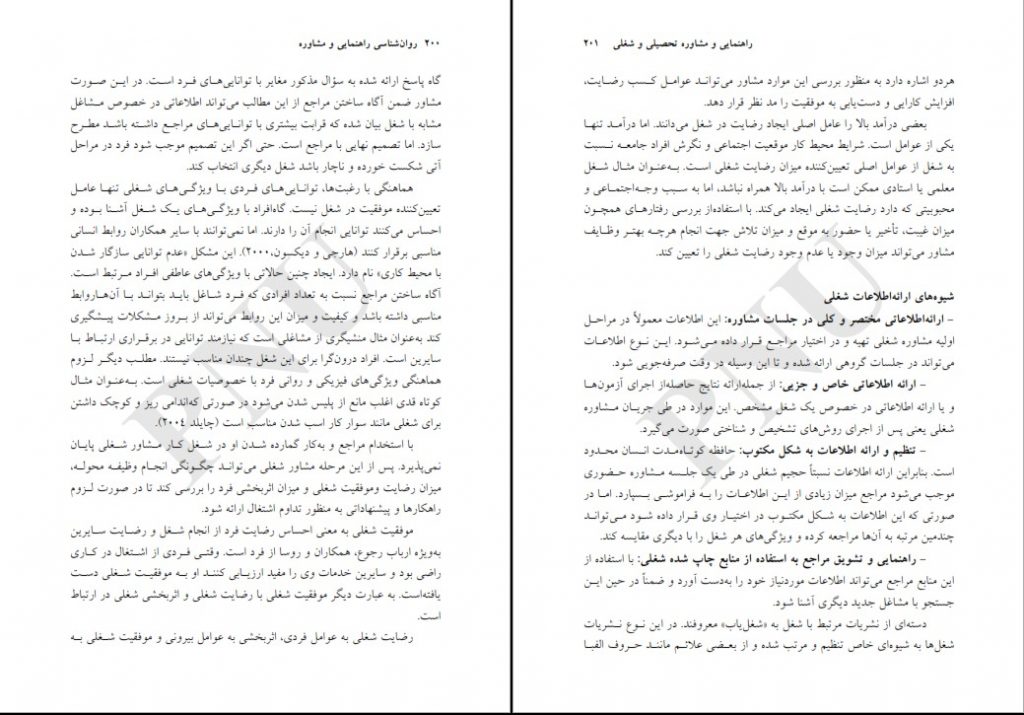 ۲۰۰ روان‌شناسی راهنمایی و مشاوره
گاه پاسخ ارائه شده به سؤال مذکور مغایر با توانایی‌های فرد است. در این صورت
مشاور ضمن آگاه ساختن مراجع از این مطالب می‌تواند اطلاعاتی در خصوص مشاغل
مشابه با شغل بیان شده که قرابت بیشتری با توانایی‌های مراجع داشته باشد مطرح
سازد. اما تصمیم نهایی با مراجع است. حتی اگر این تصمیم موجب شود فرد در مراحل
آتی شکست خورده و ناچار باشد شغل دیگری انتخاب کند.
هماهنگی با رغبت‌ها، توانایی‌های فردی با ویژگی‌های شغلی تنها عامل
تعیین‌کننده موفقیت در شغل نیست. گاه‌افراد با ویژگی‌های یک شغل آشنا بوده و
احساس می‌کنند توانایی انجام آن را دارند. اما نمی‌توانند با سایر همکاران روابط انسانی
مناسبی برقرار کنند (هارچی و دیکسون،۲۰۰۰). این مشکل «عدم توانایی سازگار شدن
با محیط کاری» نام دارد. ایجاد چنین حالاتی با ویژگی‌های عاطفی افراد مرتبط است.
آگاه ساختن مراجع نسبت به تعداد افرادی که فرد شاغل باید بتواند با آن‌هاروابط
مناسبی داشته باشد و کیفیت و میزان این روابط می‌تواند از بروز مشکلات پیشگیری
کند به‌عنوان مثال منشیگری از مشاغلی است که نیازمند توانایی در برقراری ارتباط با
سایرین است. افراد درون‌گرا برای این شغل چندان مناسب نیستند. مطلب دیگر لزوم
هماهنگی ویژگی‌های فیزیکی و روانی فرد با خصوصیات شغلی است. به‌عنوان مثال
کوتاه قدی اغلب مانع از پلیس شدن می‌شود در صورتی که‌اندامی ریز و کوچک داشتن
برای شغلی مانند سوار کار اسب شدن مناسب است (چایلد ۲۰۰۴).
با استخدام مراجع و به‌کار گمارده شدن او در شغل کار مشاور شغلی پایان
نمی‌پذیرد. پس از این مرحله مشاور شغلی می‌تواند چگونگی انجام وظیفه محوله،
میزان رضایت وموفقیت شغلی و میزان اثربخشی فرد را بررسی کند تا در صورت لزوم
راهکارها و پیشنهاداتی به منظور تداوم اشتغال ارائه شود.
موفقیت شغلی به معنی احساس رضایت فرد از انجام شغل و رضایت سایرین
به‌ویژه ارباب رجوع، همکاران و روسا از فرد است. وقتی فردی از اشتغال در کاری
راضی بود و سایرین خدمات وی را مفید ارزیابی کنند او به موفقیت شغلی دست
یافته‌است. به عبارت دیگر موفقیت شغلی با رضایت شغلی و اثربخشی شغلی در ارتباط
است.
رضایت شغلی به عوامل فردی، اثربخشی به عوامل بیرونی و موفقیت شغلی به
PNU
راهنمایی و مشاوره تحصیلی و شغلی ۲۰۱
هردو اشاره دارد به منظور بررسی این موارد مشاور می‌تواند عوامل کسب رضایت،
افزایش کارایی و دست‌یابی به موفقیت را مد نظر قرار دهد.
بعضی درآمد بالا را عامل اصلی ایجاد رضایت در شغل می‌دانند. اما درآمد تنها
یکی از عوامل است. شرایط محیط کار موقعیت اجتماعی و نگرش افراد جامعه نسبت
به شغل از عوامل اصلی تعیین‌کننده میزان رضایت شغلی است. به‌عنوان مثال شغل
معلمی یا استادی ممکن است با درآمد بالا همراه نباشد، اما به سبب وجه‌اجتماعی و
محبوبیتی که دارد رضایت شغلی ایجاد می‌کند. با استفاده‌از بررسی رفتارهای همچون
میزان غیبت، تأخیر یا حضور به موقع و میزان تلاش جهت انجام هرچه بهتر وظایف
مشاور می‌تواند میزان وجود یا عدم وجود رضایت شغلی را تعیین کند.
شیوه‌های ارائه‌اطلاعات شغلی
– ارائه‌اطلاعاتی مختصر و کلی در جلسات مشاوره: این اطلاعات معمولاً در مراحل
اولیه مشاوره شغلی تهیه و در اختیار مراجع قرار داده می‌شود. این نوع اطلاعات
می‌تواند در جلسات گروهی ارائه شده و تا این وسیله در وقت صرفه‌جویی شود.
– ارائه اطلاعاتی خاص و جزیی: از جمله‌ارائه نتایج حاصله‌از اجرای آزمون‌ها
و یا ارائه اطلاعاتی در خصوص یک شغل مشخص. این موارد در طی جریان مشاوره
شغلی یعنی پس از اجرای روش‌های تشخیص و شناختی صورت می‌گیرد.
– تنظیم و ارائه اطلاعات به شکل مکتوب: حافظه کوتاه‌مدت انسان محدود
است. بنابراین ارائه اطلاعات نسبتاً حجیم شغلی در طی یک جلسه مشاوره حضوری
موجب می‌شود مراجع میزان زیادی از این اطلاعات را به فراموشی بسپارد. اما در
صورتی که این اطلاعات به شکل مکتوب در اختیار وی قرار داده شود می‌تواند
چندمین مرتبه به آن‌ها مراجعه کرده و ویژگی‌های هر شغل را با دیگری مقایسه کند.
– راهنمایی و تشویق مراجع به استفاده از منابع چاپ شده شغلی: با استفاده از
این منابع مراجع می‌تواند اطلاعات موردنیاز خود را به‌دست آورد و ضمناً در حین این
جستجو با مشاغل جدید دیگری آشنا شود.
دسته‌ای از نشریات مرتبط با شغل به «شغل‌یاب» معروفند. در این نوع نشریات
شغل‌ها به شیوه‌ای خاص تنظیم و مرتب شده و از بعضی علائم مانند حروف الفبا
PNU